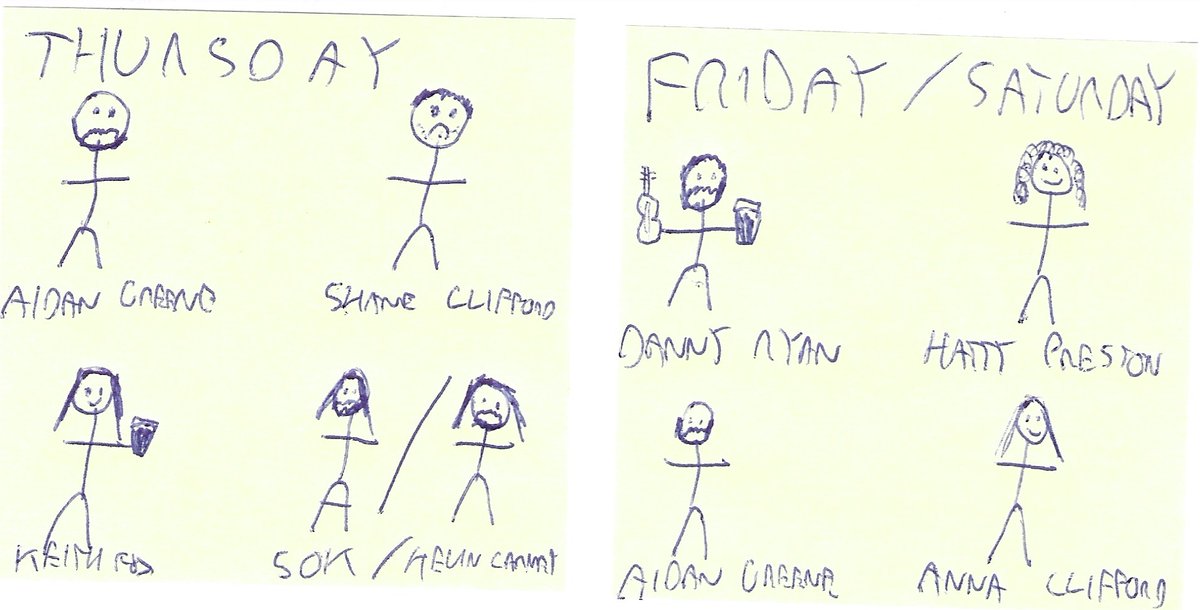 THURSDAY
AIDAN GREENE
SHANE CLIFFORD
KEITH FOX
SOK / KEVIN
FRIDAY / SATURDAY
DANNY RYAN
HATTY PRESTON
AIDAN GREENE
ANNA CLIFFORD